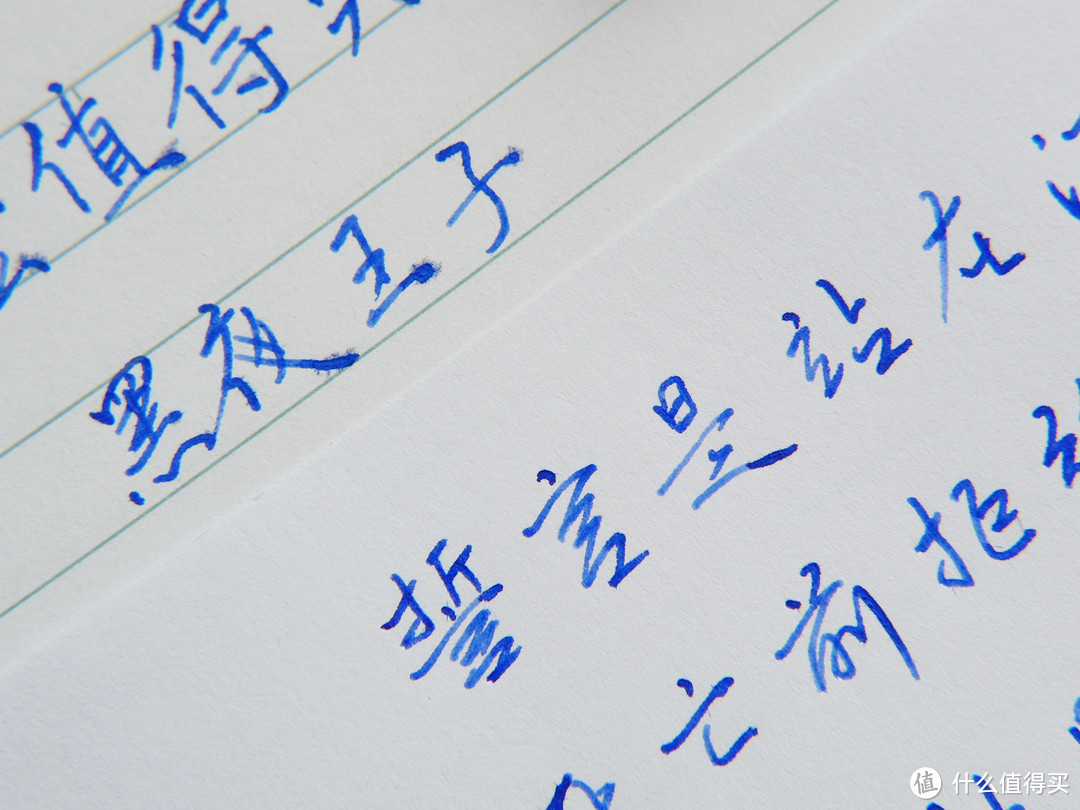 值得
黑夜王子
誓言是站在
亡前拒
值 什么值得买